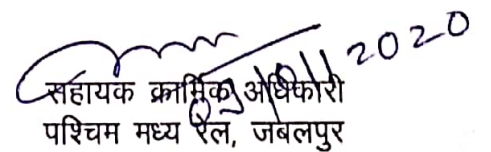 2020
सहायक क्रार्मिक अधिकारी
पश्चिम मध्य रेल, जबलपुर